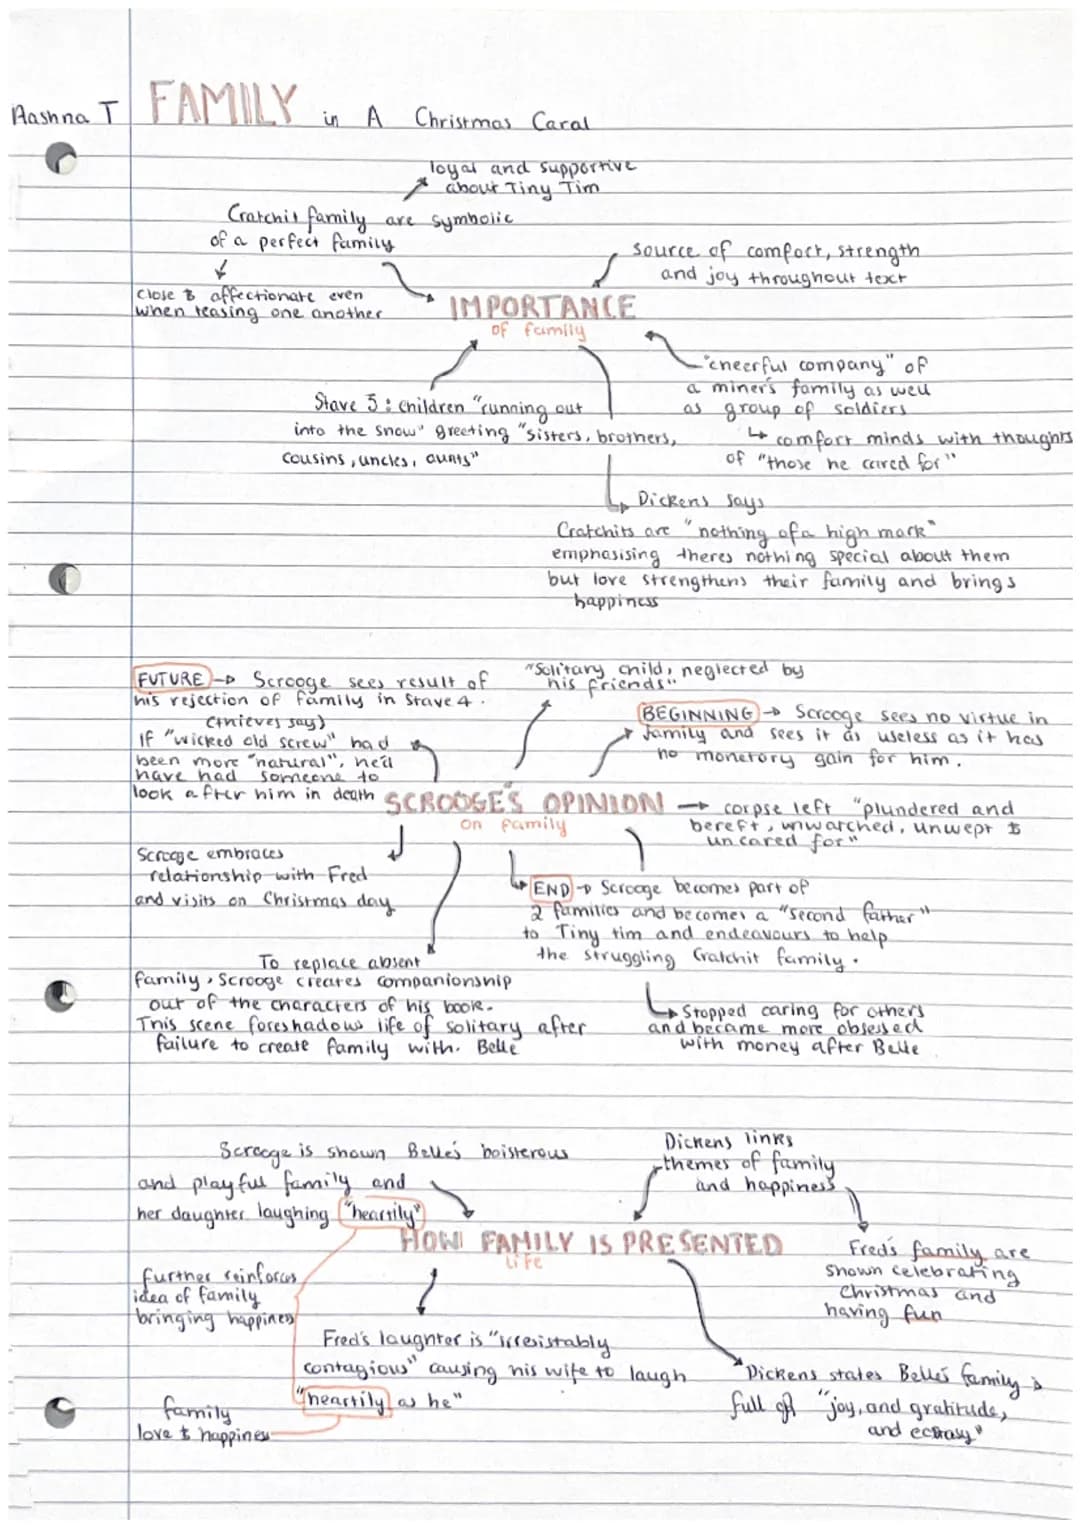 Aashna T
FAMILY in A Christmas Caral
loyal and supportive
about Tiny Tim
Cratchit family are symbolic
of a perfect family
Close & affectionate even
when teasing one another
source of comfort, strength
and joy throughout text
IMPORTANCE
of family
"cheerful company" of
a miner's family as well
as group of soldiers
↳ comfort minds with thoughts
of "those he cared for"
Stave 3: children "running out
into the snow" greeting "sisters, brothers,
cousins, uncles, aunts"
Dickens says
Cratchits are "nothing of a high mark"
emphasising theres nothing special about them
but love strengthens their family and brings
happiness
FUTURE → Scrooge sees result of
his rejection of family in Stave 4.
(thieves say)
If "wicked old screw" had
been more "natural", he'll
have had someone to
look after him in death
"Solitary child, neglected by
his friends"
BEGINNING → Scrooge sees no virtue in
family and sees it as useless as it has
no monetary gain for him.
SCROOGE'S OPINION
on family
→ corpse left "plundered and
bereft, unwatched, unwept &
uncared for"
Scrooge embraces
relationship with Fred
and visits on Christmas day
END → Scrooge becomes part of
2 families and becomes a "second father"
to Tiny tim and endeavours to help
the struggling Cratchit family.
To replace absent
family, Scrooge creates companionship
out of the characters of his book.
This scene foreshadows life of solitary after
failure to create family with. Belle
Stopped caring for others
and became more obsessed
with money after Belle
Scrooge is shown Belle's boisterous
and playful family and
her daughter laughing "heartily"
Dickens links
themes of family
and happiness
HOW FAMILY IS PRESENTED
life
Fred's family are
shown celebrating
Christmas and
having fun
further reinforces
idea of family
bringing happiness
Fred's laughter is "irresistably
contagious" causing his wife to laugh
"heartily as he"
Dickens states Belle's family is
full of "joy, and gratitude,
and ecstasy"
family
love & happiness